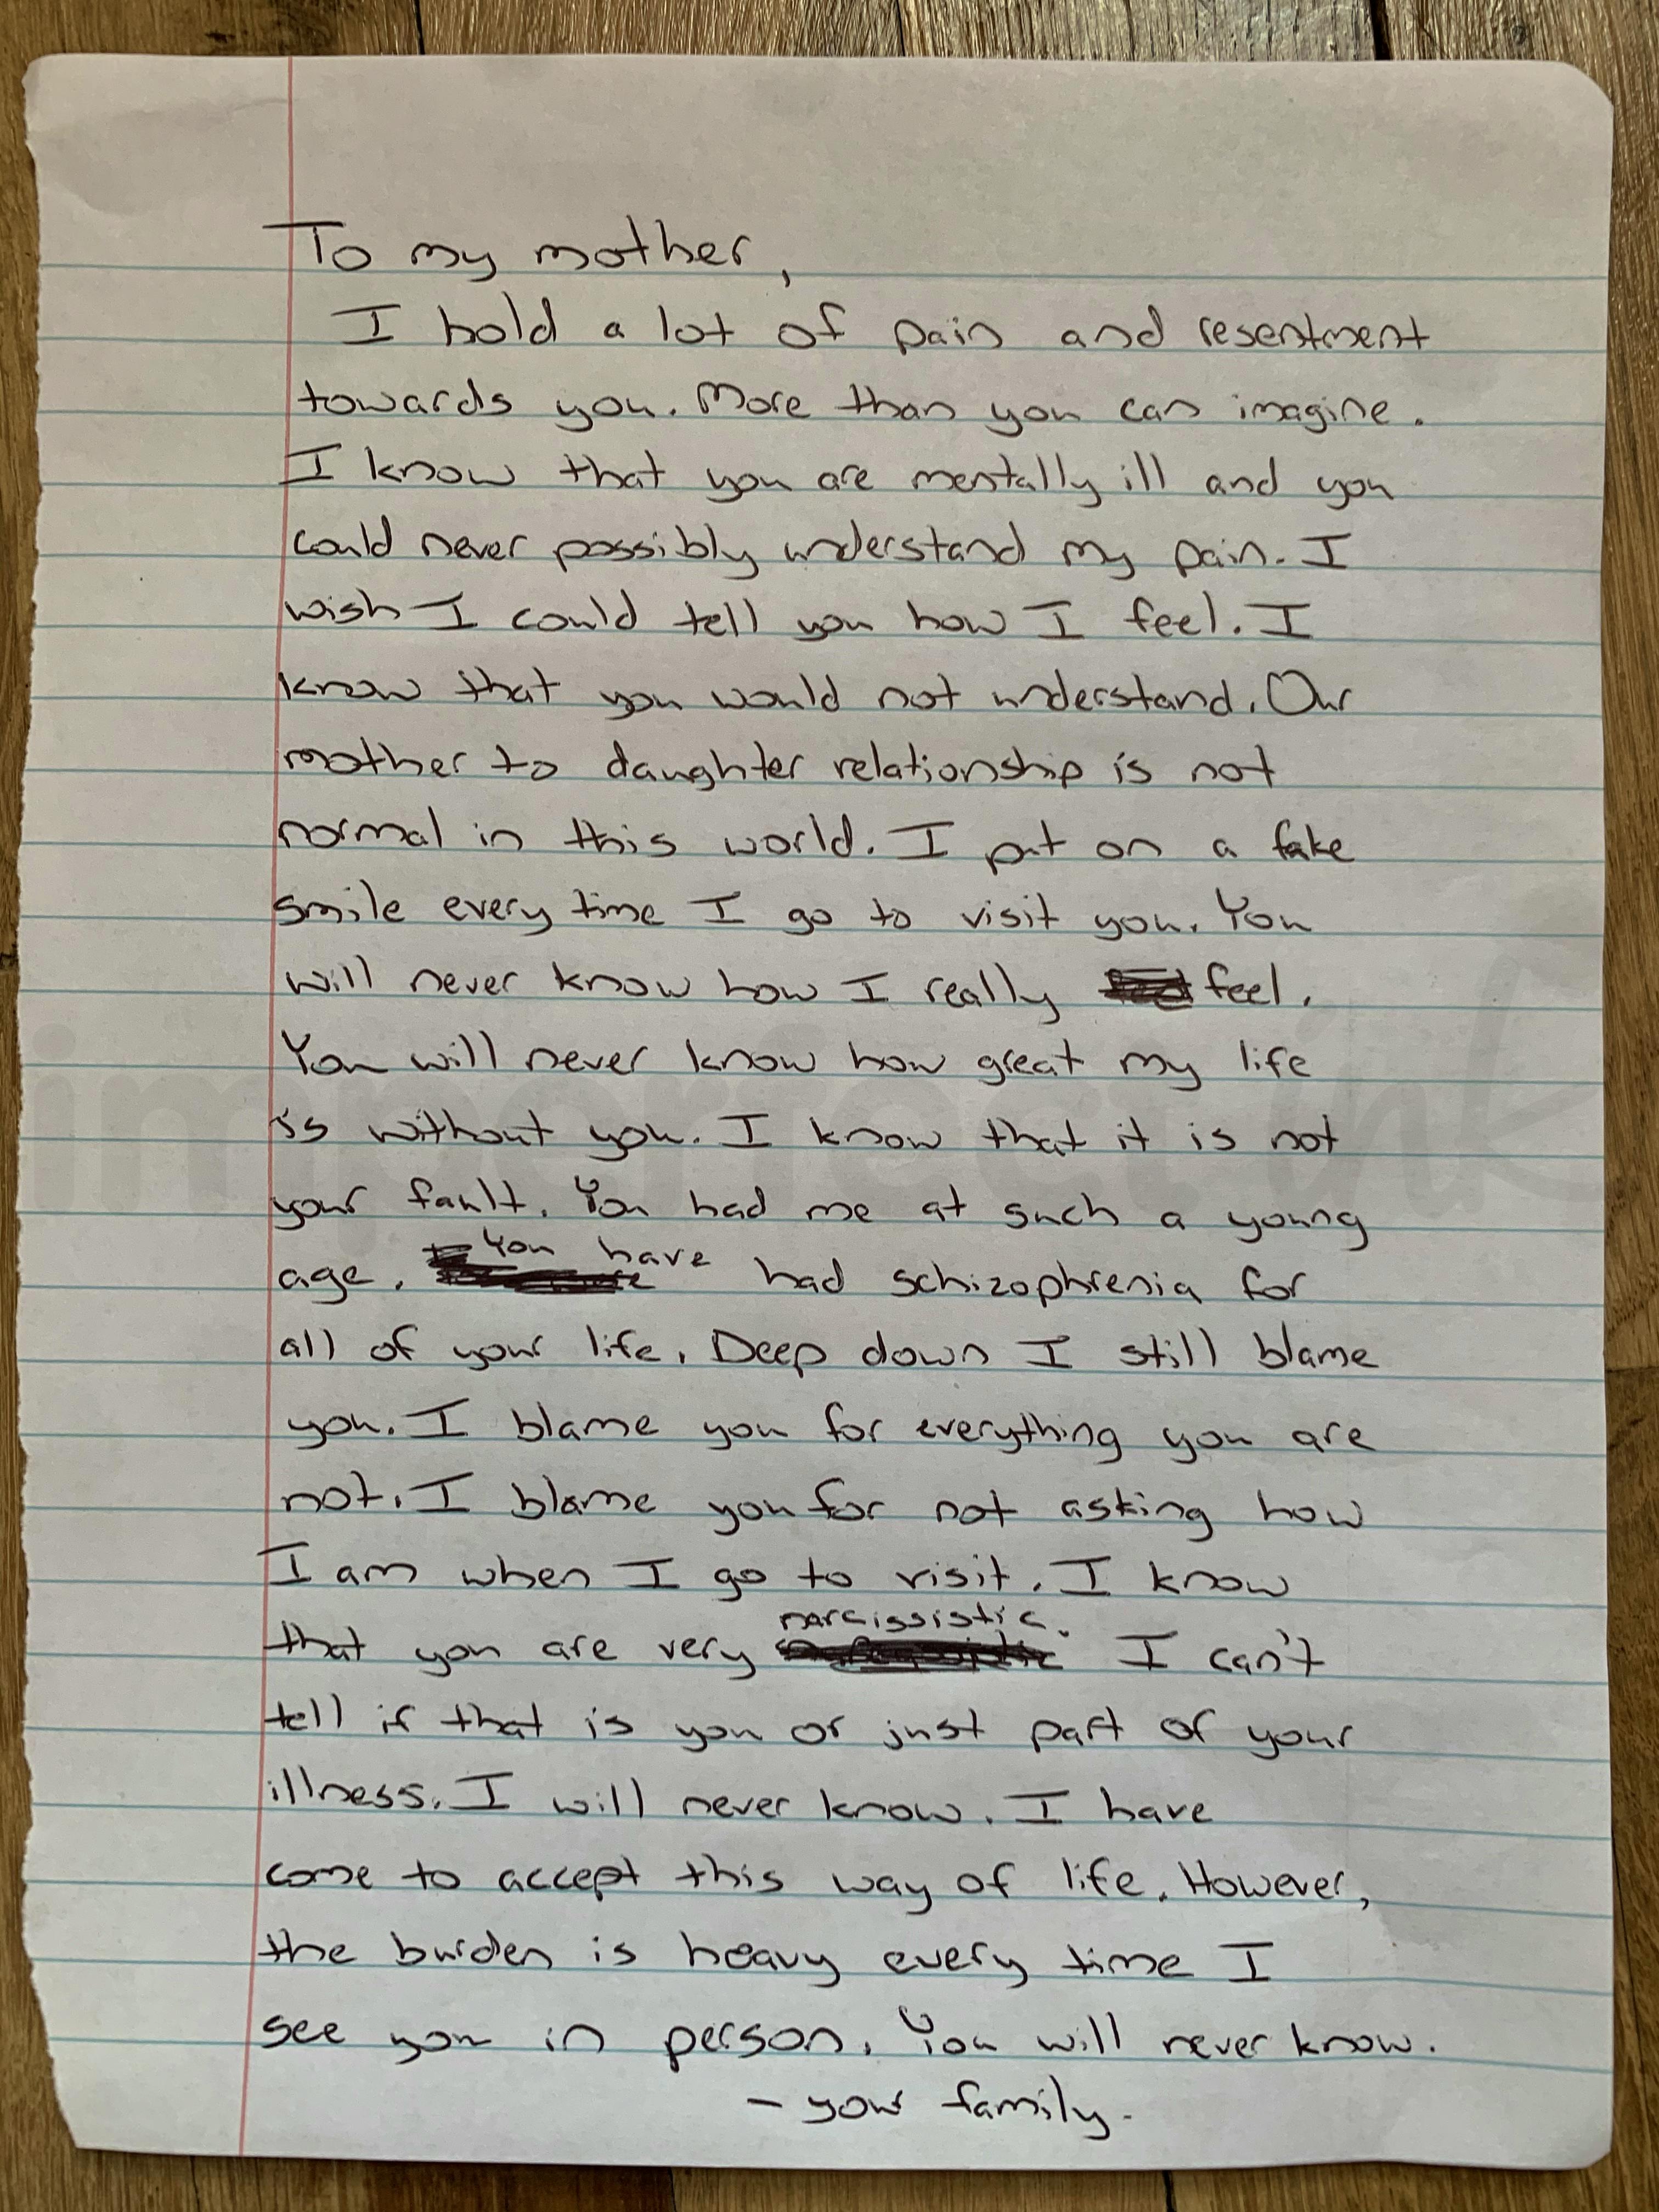 To my mother,
I hold a lot of pain and resentment
towards you. More than you can imagine.
I know that you are mentally ill and you
could never possibly understand my pain. I
wish I could tell you how I feel. I
know that you would not understand. Our
mother to daughter relationship is not
normal in this world. I put on a fake
smile every time I go to visit you. You
will never know how I really feel.
You will never know how great my life
is without you. I know that it is not
your fault. You had me at such a young
age. You have had schizophrenia for
all of your life. Deep down I still blame
you. I blame you for everything you are
not. I blame you for not asking how
I am when I go to visit. I know
that you are very narcissistic. I can't
tell if that is you or just part of your
illness. I will never know. I have
come to accept this way of life. However,
the burden is heavy every time I
see you in person. You will never know.
- your family.
imperfect ink